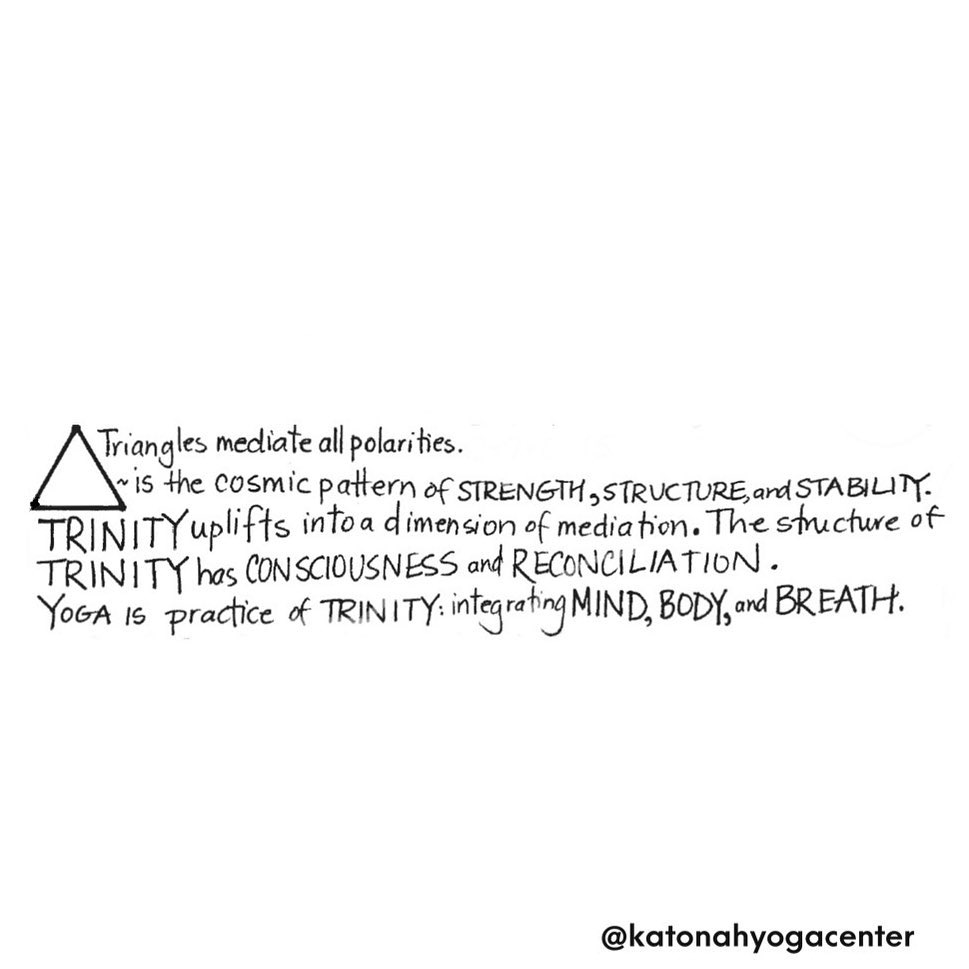 Triangles mediate all polarities.
~is the cosmic pattern of STRENGTH, STRUCTURE, and STABILITY.
TRINITY uplifts into a dimension of mediation. The structure of
TRINITY has CONSCIOUSNESS and RECONCILIATION.
YOGA IS practice of TRINITY: integrating MIND, BODY, and BREATH.
@katonahyogacenter